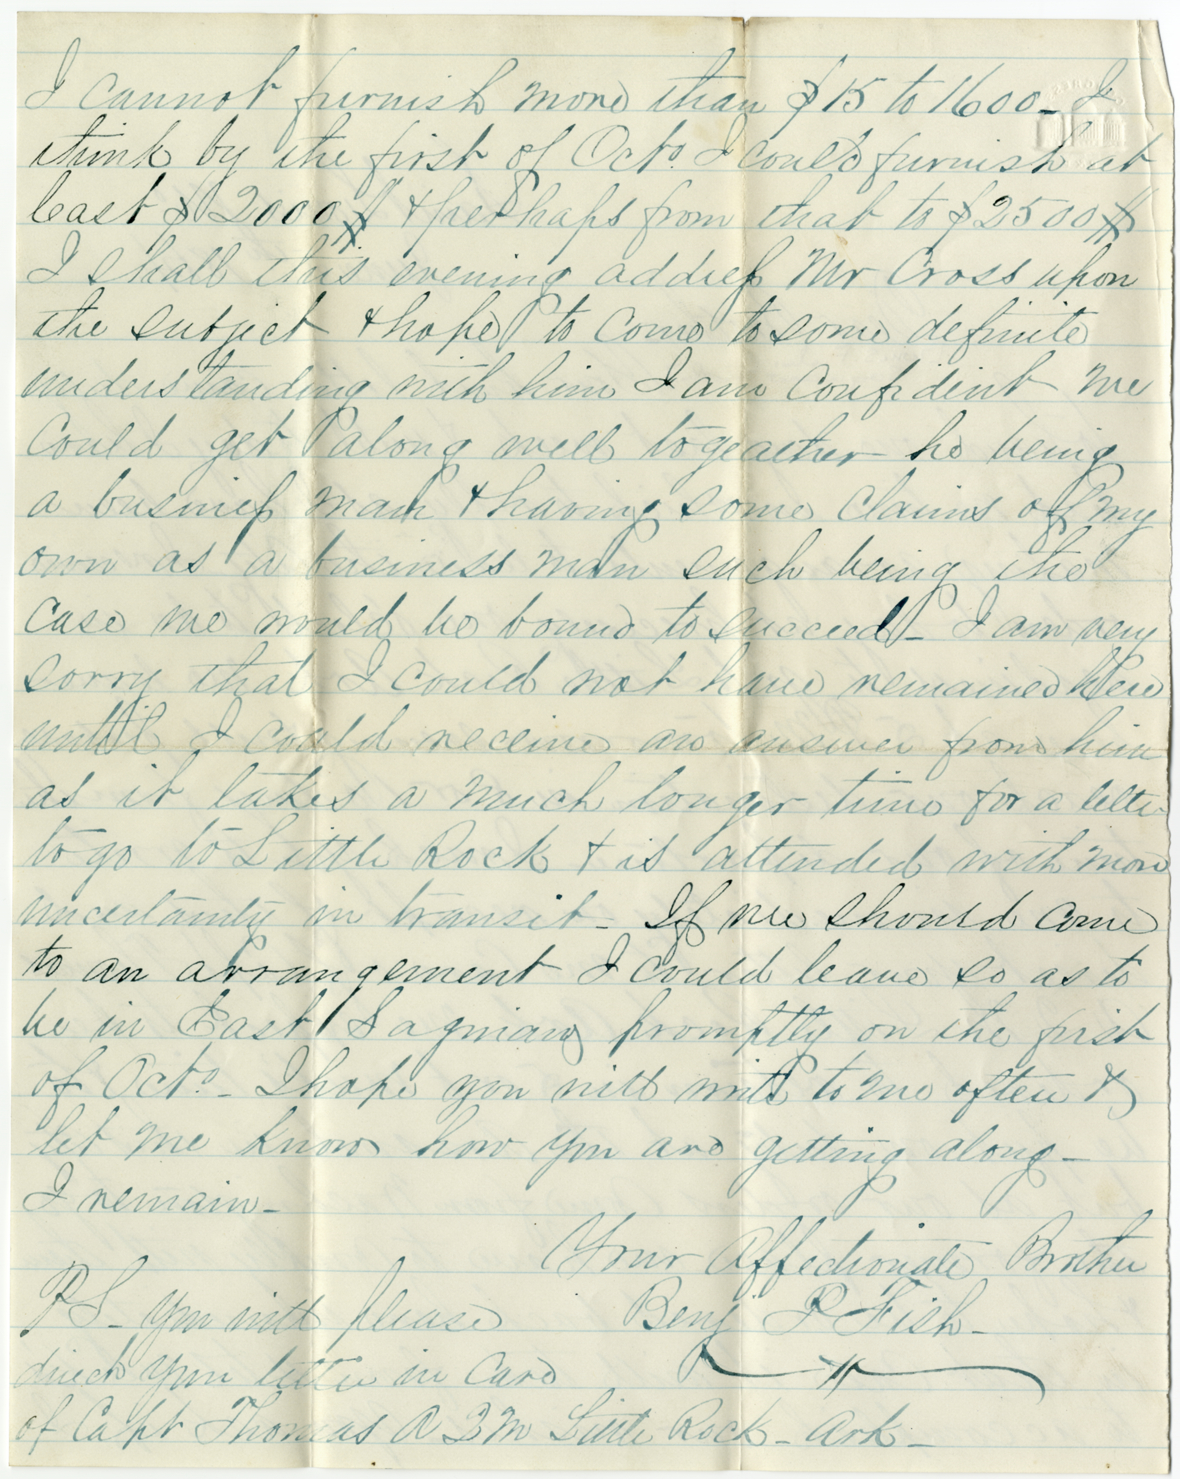 I cannot furnish more than $15 to 1600 - I
think by the first of Octo. I could furnish at
least $2000 & perhaps from that to $2500
I shall this evening address Mr Cross upon
the subject & hope to come to some definite
understanding with him I am confident we
could get along well togeather he being
a business man & having some claims of my
own as a business man such being the
case we would be bound to succeed - I am very
sorry that I could not have remained here
until I could receive an answer from him
as it takes a much longer time for a letter
to go to Little Rock & is attended with more
uncertainty in transit - If we should come
to an arrangement I could leave so as to
be in East Saginaw promptly on the first
of Octo - I hope you will write to me often &
let me know how you are getting along -
I remain -
Your Affectionate Brother
Benj P Fish -
PS - You will please
direct your letter in care
of Capt Thomas A Q M Little Rock - Ark -